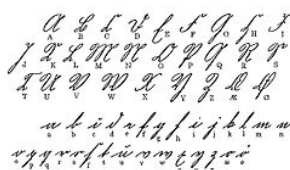 A B C D E F G H I
J K L M N O P Q R S
T U V W X Y Z Æ Ø
a b c d e f g h i j k l m n
o p q r s t u v w x y z æ ø